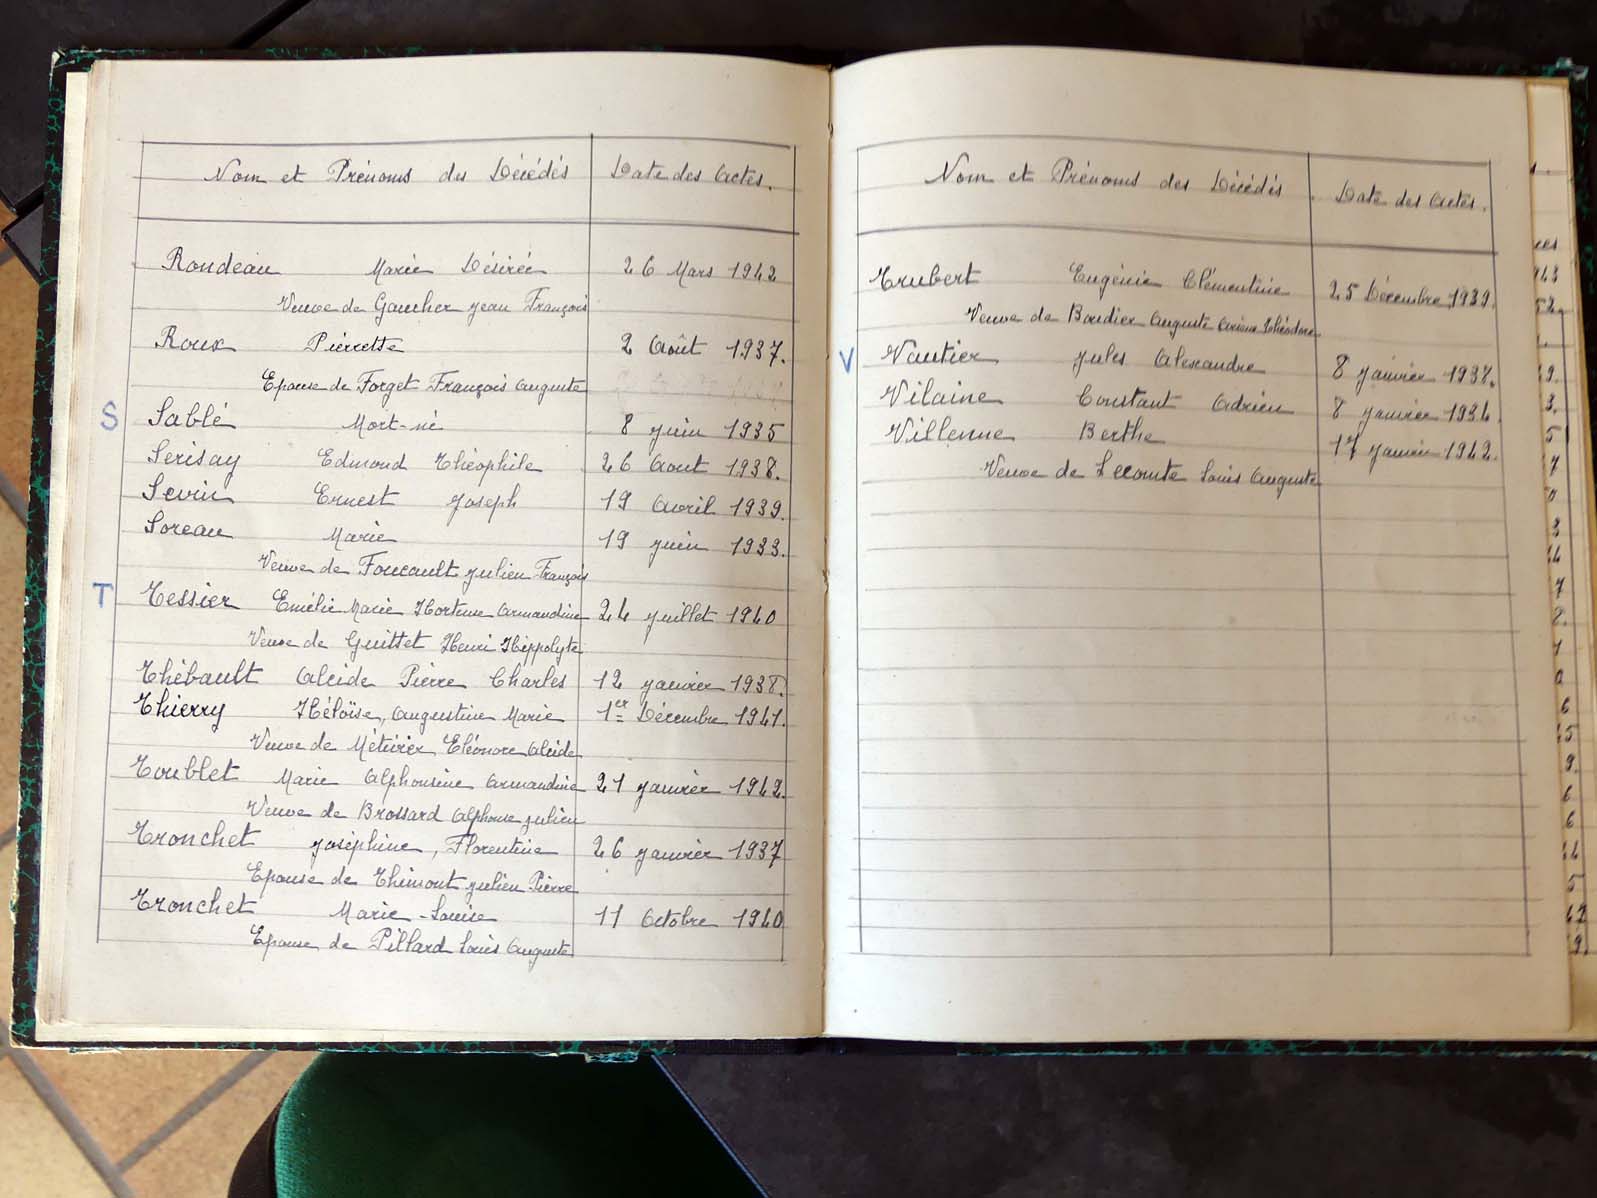 Nom et Prénoms des Décédés Date des Actes.
Rondeau Marie Désirée 26 Mars 1942
Veuve de Gaucher Jean François
Roux Pierrette 2 Août 1937.
Epouse de Forget François Auguste
S Sablé Mort-né 8 Juin 1935
Serisay Edmond Théophile 26 Aout 1938.
Sevin Ernest Joseph 19 Avril 1939.
Soreau Marie 19 Juin 1933.
Veuve de Foucault Julien François
T Tessier Emélie Marie Hortense Armandine 24 Juillet 1940
Veuve de Guittet Henri Hippolyte
Thébault Alcide Pierre Charles 12 Janvier 1938.
Thierry Héloïse, Augustine Marie 1er Décembre 1941.
Veuve de Métivier Eléonore Alcide
Toublet Marie Alphonsine Armandine 21 Janvier 1942.
Veuve de Brossard Alphonse Julien
Tronchet Joséphine, Florentine 26 Janvier 1937
Epouse de Thimont Julien Pierre
Tronchet Marie-Louise 11 Octobre 1940
Epouse de Pillard Louis Auguste
Nom et Prénoms des Décédés Date des Actes.
Trubert Eugénie Clémentine 25 Décembre 1939.
Veuve de Bordier Auguste Théodore
V Vautier Jules Alexandre 8 Janvier 1938.
Vilaine Constant Adrien 8 Janvier 1934.
Villenne Berthe 17 Janvier 1942.
Veuve de Lecomte Louis Auguste